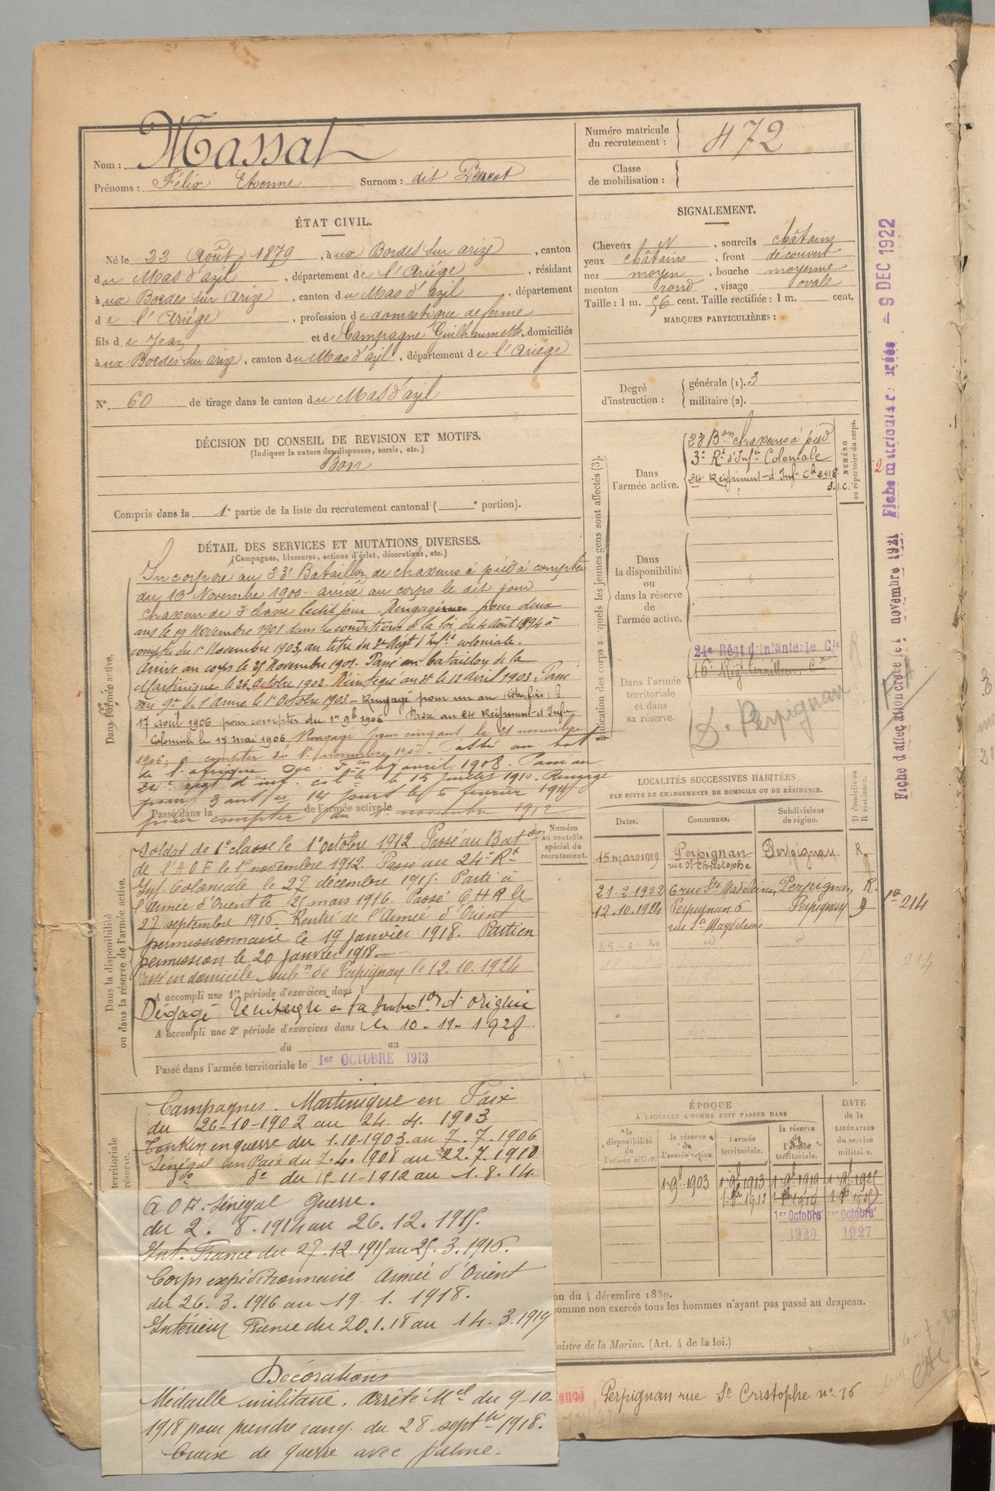 Nom : Massat
Prénoms : Félix Etienne Surnom : dit Perrot
Numéro matricule du recrutement : 472
Classe de mobilisation :
ÉTAT CIVIL.
Né le 22 Août 1879, à ux Bordes sur arize, canton
du Mas d'azil, département de l'Ariége, résidant
à ux Bordes sur Arize, canton du Mas d'azil, département
de l'Ariége, profession de domestique de ferme
fils de Jean et de Campagne Guilhaumette, domiciliés
à ux Bordes sur arize, canton du Mas d'azil, département de l'Ariège
N° 60 de tirage dans le canton du Mas d'azil
SIGNALEMENT.
Cheveux N, sourcils châtains
yeux châtains, front découvert
nez moyen, bouche moyenne
menton rond, visage ovale
Taille : 1 m. 56 cent. Taille rectifiée : 1 m. cent.
MARQUES PARTICULIÈRES :
Degré d'instruction : générale (1). 3
militaire (2).
DÉCISION DU CONSEIL DE REVISION ET MOTIFS.
(Indiquer la nature des dispenses, sursis, etc.)
Bon
Compris dans la 1e partie de la liste du recrutement cantonal ( e portion).
DÉTAIL DES SERVICES ET MUTATIONS DIVERSES.
(Campagnes, blessures, actions d'éclat, décorations, etc.)
Dans l'armée active.
Incorporé au 23e Bataillon de chasseurs à pied à compter
du 13 Novembre 1900. arrivé au corps le dit jour
Chasseur de 2e classe ledit jour. Rengagé pour deux
ans le 19 Novembre 1901 dans les conditions de la loi du 4 Août 1894 à
compter du 1er Novembre 1903, au titre du 3e Régt d'Infie coloniale.
Arrivé au corps le 25 Novembre 1901. Passé au bataillon de la
Martinique le 26 Octobre 1902. Réintégré au 3e le 12 avril 1903. Passé
au 9e le 1er Octobre 1903. Rengagé pour un an
17 Août 1906 pour compter du 1er 9bre 1906 Passé au 24 Régiment d'Infie
Coloniale le 17 mai 1906 Rengagé pour cinq ans le 21 novembre
1906, à compter du 1er novembre 1907. Passé au bat
de l'afrique Occ. 7 avril 1908. Passé au
24e régt d'inf. colle le 15 juillet 1910. Rengagé
pour 3 ans 14 jours le 6 février 1911
pour compter du 1er novembre 1912
Passé dans la de l'armée active le
Dans la disponibilité ou dans la réserve de l'armée active.
Soldat de 1e classe le 1er octobre 1912 Passé au Baton
de l'A O F le 1er novembre 1912. Passé au 24e Rt
Inf. Coloniale le 27 décembre 1915. Parti à
l'Armée d'Orient le 26 mars 1916. Passé C H R le
27 septembre 1916. Rentré de l'Armée d'Orient
permissionnaire le 19 janvier 1918. Parti en
permission le 20 janvier 1918.
Passé en domicile subon de Perpignan le 12.10.1924
A accompli une 1re période d'exercices dans l
Dégagé
A accompli une 2e période d'exercices dans l le 10-11-1928
du au
Passé dans l'armée territoriale le 1er OCTOBRE 1913
Numéro au contrôle spécial du recrutement.
Indication des corps auxquels les jeunes gens sont affectés (3).
NUMÉRO au répertoire du corps.
Dans l'armée active.
23 Bon chasseurs à pied
3e Rt d'Infie Coloniale
24 Régiment d'Inf Cle
Dans la disponibilité ou dans la réserve de l'armée active.
Dans l'armée territoriale et dans sa réserve.
24e Régt d'Infanterie Cle
16e Régt Tirailleurs
D. Perpignan
LOCALITÉS SUCCESSIVES HABITÉES
PAR SUITE DE CHANGEMENTS DE DOMICILE OU DE RÉSIDENCE.
Dates. Communes. Subdivisions de région. D domicile ou R résidence.
15 mars 1919 Perpignan rue St Christophe Perpignan R
21-2-1922 6 rue Ste Madeleine, Perpignan, R.
12.10.1924 Perpignan 6 rue Ste Magdeleine Perpignan D
214
214
ÉPOQUE
À LAQUELLE L'HOMME DOIT PASSER DANS
DATE de la LIBÉRATION du service militaire.
la disponibilité de l'armée active.
la réserve de l'armée active.
l'armée territoriale.
la réserve de l'armée territoriale.
1-9bre 1903 1-9bre 1913 1-9bre 1919
1er Octobre 1920 1er Octobre 1927
Campagnes. Martinique en Paix
du 26-10-1902 au 24.4.1903
Tonkin en guerre du 1-10-1903 au 7.7.1906
Sénégal en Paix du 7.4.1908 au 22.7.1910
do do du 15-11-1912 au 1.8.14
A O F. Sénégal guerre.
du 2. 8.1914 au 26.12.1915.
Int. France du 27.12.1915 au 25.3.1916.
Corps expéditionnaire Armée d'Orient
du 26.3.1916 au 19.1.1918.
Intérieur France du 20.1.18 au 14.3.1919
Décorations
Médaille militaire. arrêté Mel du 9 10
1918 pour prendre rang du 28 septbre 1918.
Croix de guerre avec palme.
on du 4 décembre 1889.
omme non exercés tous les hommes n'ayant pas passé au drapeau.
nistre de la Marine. (Art. 4 de la loi.)
Perpignan rue St Cristophe n° 16
Fiche d'affectation créée le novembre 1921 Fiche matricule créée - 9 DEC 1922